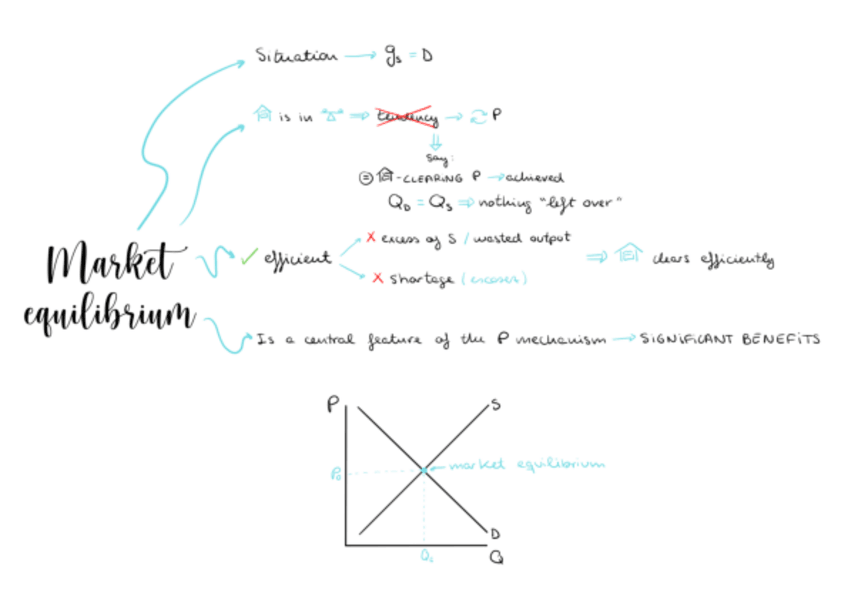 Situation → gs = D
is in ⇒ tendency → P
say:
= -CLEARING P → achieved
QD = QS ⇒ nothing "left over"
Market
equilibrium
✓ efficient
X excess of S / wasted output
X shortage
⇒ clears efficiently
Is a central feature of the P mechanism → SIGNIFICANT BENEFITS
P
S
market equilibrium
P0
D
Q